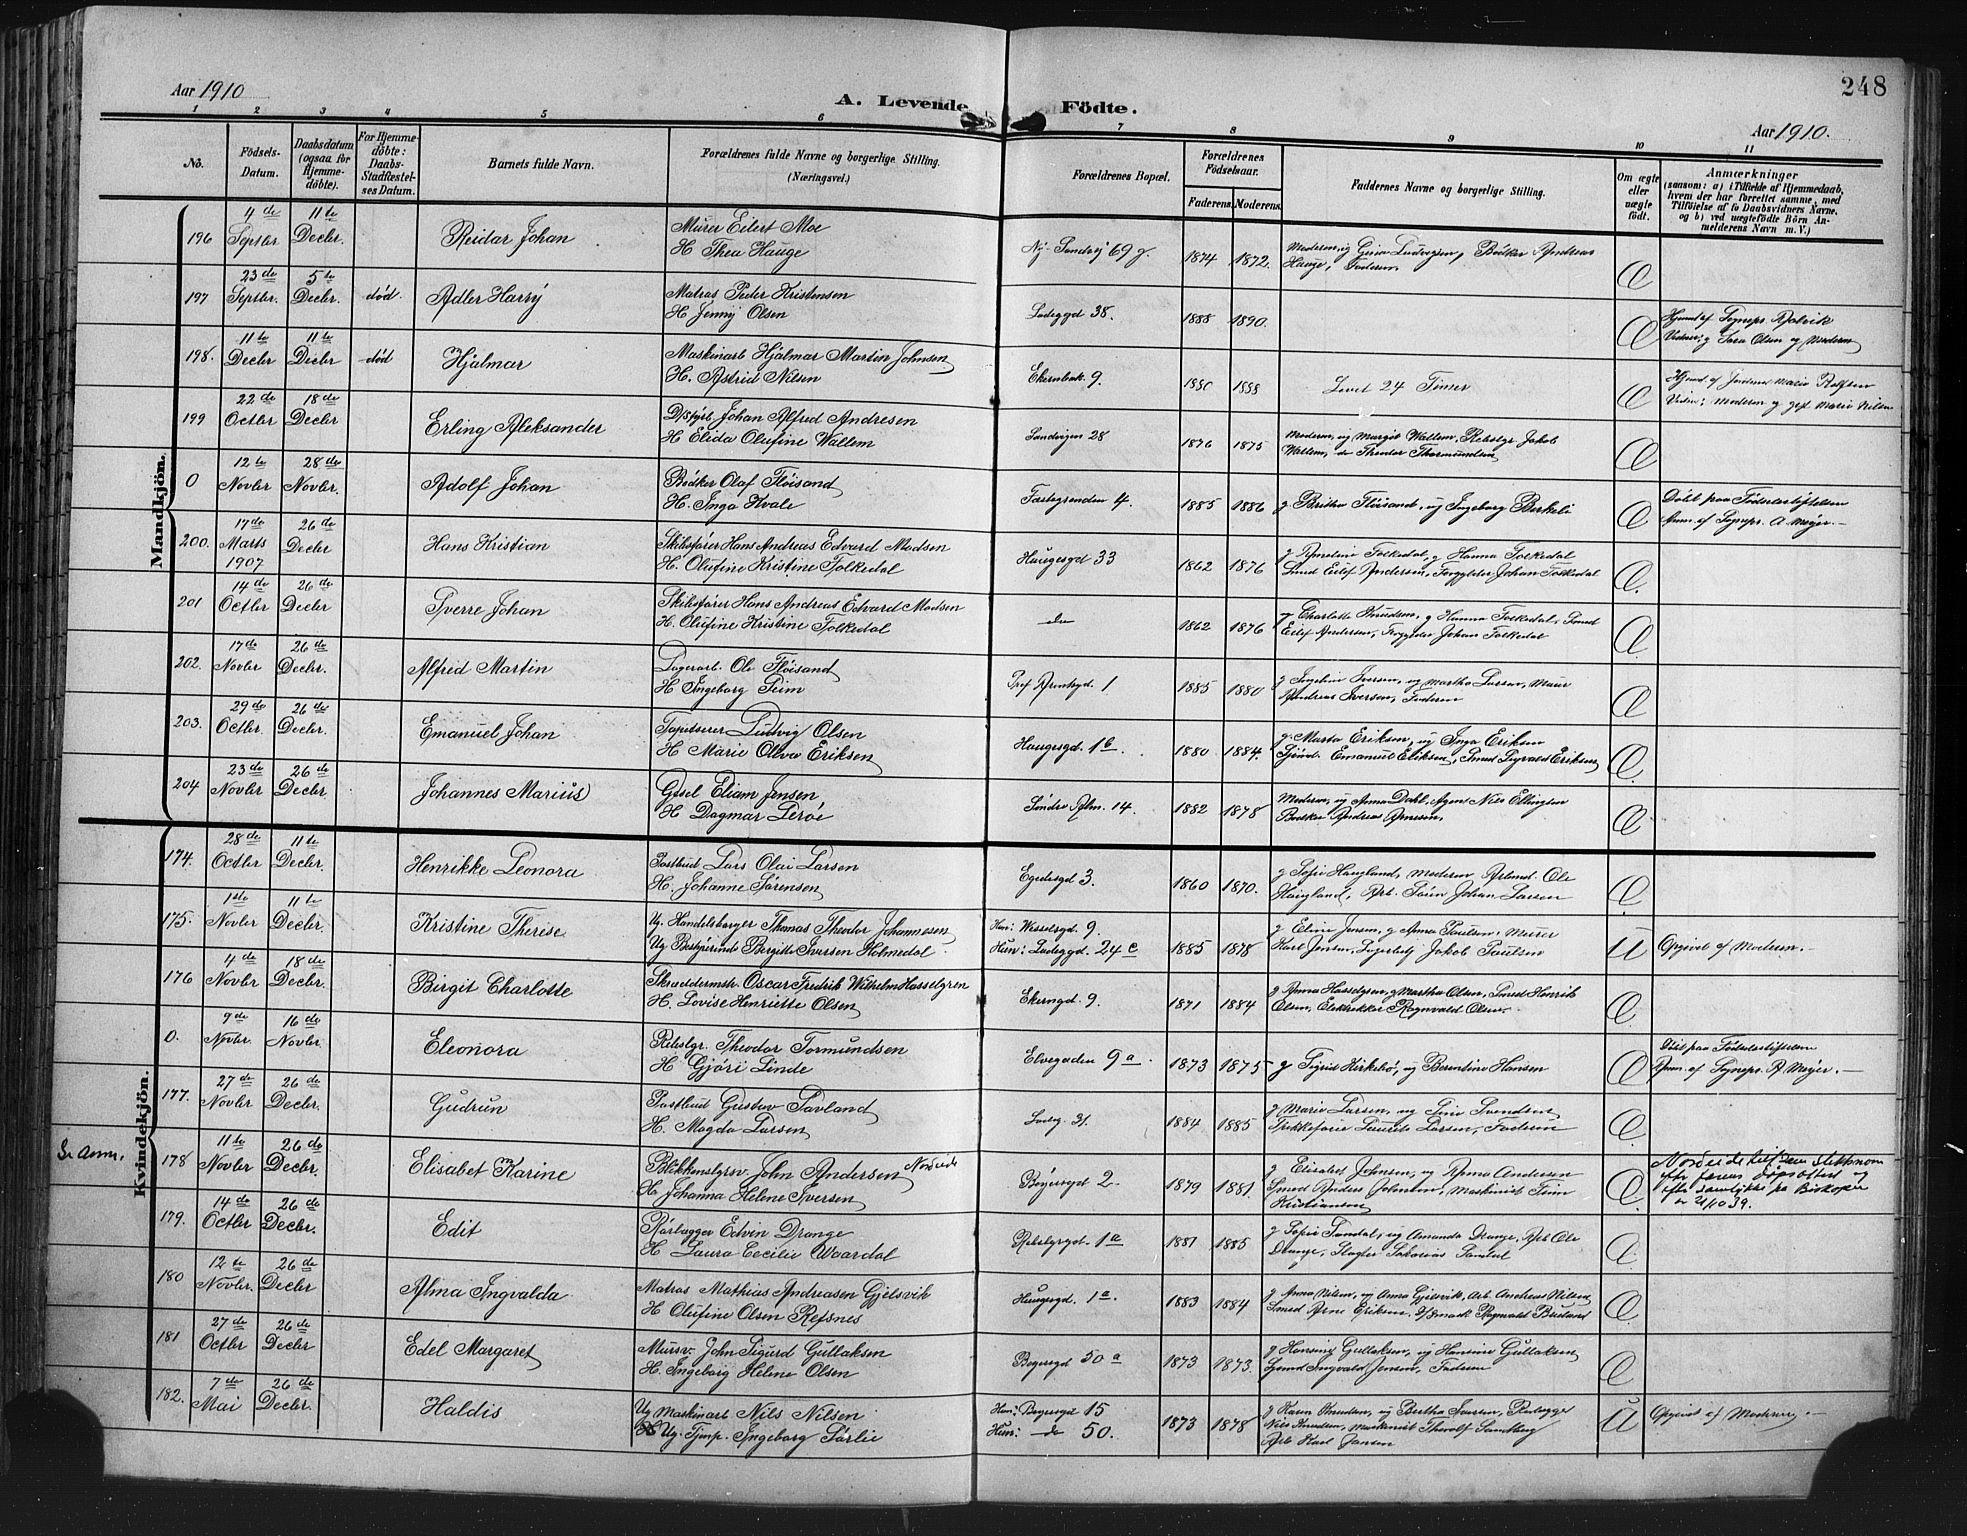 248
Aar 1910
A. Levende Födte.
Aar 1910.
1 2 3 4 5 6 7 8 9 10 11
No.
Födsels-Datum.
Daabsdatum (ogsaa for Hjemmedöbte).
For Hjemmedöbte: Daabs-Stadfæstelses Datum.
Barnets fulde Navn.
Forældrenes fulde Navne og borgerlige Stilling. (Næringsvei.)
Forældrenes Bopæl.
Forældrenes Födselsaar.
Faderens. Moderens.
Faddernes Navne og borgerlige Stilling.
Om ægte eller uægte födt.
Anmærkninger
(saasom: a) i Tilfælde af Hjemmedaab, hvem der har forrettet samme, med Tilföielse af to Daabsvidners Navne, og b) ved uægtefödte Börn Anmelderens Navn m. V.)
Mandkjön.
196 4de Septbr. 11te Decbr. Reidar Johan
Murer Eilert Moe
H. Thea Hauge
Ny-Sandvij 69 g. 1874 1872.
Moderen, ug Gina Ludvigsen, Bödker Andreas
Hauge, Faderen. Æ
197 23de Septbr. 5te Decbr. död. Adler Harry
Matros Peder Kristensen
H. Jenny Olsen
Ladeggd 38. 1888 1890. Æ
Hjemd af
Olsen og Moderen
198. 11te Decbr 11te Decbr död Hjalmar
Maskinarb Hjalmar Martin Johnsen
H. Astrid Nilsen
9. 1880 1888 Levet 24 Timer Æ
Hjemd. af Jordem Marie
Moderen og Marie Nilsen
199 22de Octbr 18de Decbr. Erling Aleksander
Johan Alfred Andresen
H Elida Olufine Wallem
Sandvigen 28 1876 1875
Moderen, ug Margit Wallem, Rebslgr Jakob
Wallem, do Theodor Thormundsen Æ
0 12te Novbr 28de Novbr. Adolf Johan
Bödker Olaf Flöisand
H. Inga Kvale
4. 1885 1886
g Britha Flöisand, ug Ingeborg Birkeli Æ
Döbt paa Födselsstiftelsen
Anm. af A Meyer.—
200. 17de Marts 1907 26de Decbr Hans Kristian
Skibsförer Hans Andreas Edvard Madsen
H. Olufine Kristine Folkedal
Haugesgd 33 1862 1876
g Ameline Folkedal, g Hanna Folkedal
Smed Eilef Andersen, Forgylder Johan Folkedal Æ.
201 14de Octbr 26de Decbr Sverre Johan
Skibsförer Hans Andreas Edvard Madsen
H. Olufine Kristine Folkedal
do 1862 1876
g Charlotte Knudsen, g Hanna Folkedal, Smed
Eilef Andersen, Forgylder Johan Folkedal Æ.
202. 17de Novbr 26de Decbr. Alfred Martin
Lagerarb. Ole Flöisand
H Ingeborg Seim
1 1885 1880
g Ingeline Iversen, ug Martha Larsen, Murer
Andreas Iversen, Faderen Æ
203. 29de Octbr. 26de Decbr. Emanuel Johan
Tapetserer Ludvig Olsen
H. Marie Oliva Eriksen
Haugesgd. 1b 1880 1884.
g. Marta Eriksen, ug Inga Eriksen
Sjömd. Emanuel Eriksen, Smed Sigvald Eriksen Æ.
204 23de Novbr 26de Decbr. Johannes Marius
Gjæst Eliam Jensen
H Dagmar Leröe
Söndre Alm. 14 1882 1878
Moderen, ug Anna Dahl, Agent Nils Ellingsen
Bödker Andreas Arnesen, Æ
Kvindekjön.
174. 28de Octbr 11te Decbr. Henrikke Leonora
Postbud Lars Olai Larsen
H. Johanne Sörensen
Egedesgd 3. 1860 1870.
g Sofie Haugland, Moderen, Arbmd. Ole
Haugland, Arb. Sören Johan Larsen Æ.
175. 1ste Novbr. 11te Decbr. Kristine Therese
Ug. Handelsborger Thomas Theodor Johannesen
Ug Bergitte Iversen Holmedal
Han: Wesselsgd. 9.
Hun: Ladeggd. 24 c 1885 1878
g Eline Jensen, g Anna Paulsen, Murer
Karl Jensen, Jakob Paulsen U
Opgivet af Moderen.—
176 4de Novbr 18de Decbr. Birgit Charlotte
Skræddermstr. Oscar Fredrik Wilhelm Hasselgren
H. Lovise Henriette Olsen
Ekerngd. 9. 1871 1884
g Anna Hasselgren, g Martha Olsen, Smed Henrik
Olsen, Elektriker Ragnvald Olsen. Æ.
0. 9de Novbr. 16de Novbr. Eleonora
Rebslgr. Theodor Tormundsen
H Gjöri Linde
Elvegaden 9a. 1873 1875
g Sigrid Kirkebö, ug Berentine Hansen Æ
Döbt paa Födselsstiftelsen
Anm. af A Meyer.—
177. 27de Novbr. 26de Decbr. Gudrun
Postbud Gustav Tavland
H. Magda Larsen
31. 1884 1885
g Marie Larsen, ug Sine Svendsen
Laurits Larsen, Faderen Æ.
Se anm. 178 11te Novbr. 26de Decbr. Elisabet Karine
Blikkenslgrsv. John Andersen Nordeide
H. Johanna Helene Iversen
Böyersgd 2. 1879 1881.
g Elisabet Johnsen, ug Anna Andersen
Smed Anders Johnsen, Maskinist Seim
Kristiansen Æ.
Nordeide tilf som slektsnavn
efter farens dåpsattest og
efter samtykke på Biskopen
av 21/10 39.
179. 14de Octbr 26de Decbr. Edit
Rörlægger Edvin Drange
H Laura Cecilie Waardal
Rebslgrgd. 1a 1881 1885
g Sofie Sandal, ug Amanda Drange, Arb Ole
Drange, Slagter Sakarias Æ.
180 12te Novbr. 26de Decbr. Alma Ingvalda
Matros Mathias Andreasen Gjelsvik
H. Olufine Olsen Refsnes
Haugesgd. 1a. 1883 1884
g Anna Nilsen, ug Anna Gjelsvik, Arb Andreas Nilsen
Smed Arne Eriksen, Ragnvald Æ.
181 27de Octbr 26de Decbr Edel Margaret
Mursv. John Sigurd Gullaksen
H. Ingeborg Helene Olsen
Böyersgd 50a 1873 1873.
g Hansine Gullaksen, ug Hansine Gullaksen
Sjömd Ingvald Jensen, Faderen Æ
182. 7de Mai 26de Decbr. Haldis
Ug Maskinarb Nils Nilsen
Ug. Ingeborg Sörlie
Han: Böyersgd 15
Hun: do 50. 1873 1878
g Karen Knudsen, ug Bertha Iversen, Pladelægger
Nils Knudsen, Maskinist Thorolf Sandberg
Arb Karl Jansen U
Opgivet af Moderen.—